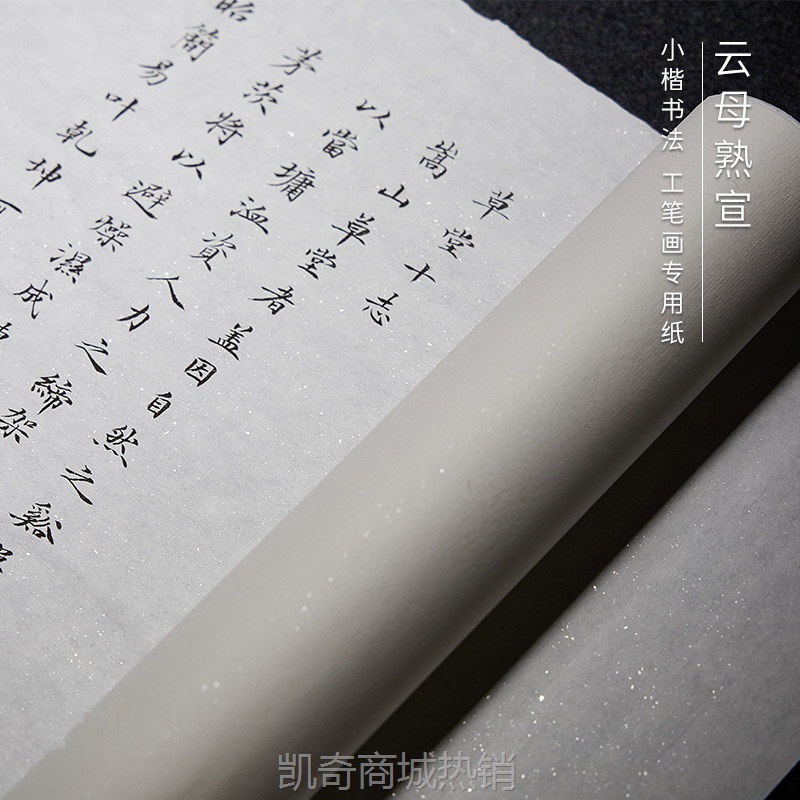 云母熟宣
小楷书法 工笔画专用纸
草堂十志
嵩山草堂者盖因自然之谿
以當墉洫資人力之締架
茅茨將以避燥濕成
昭簡易叶乾坤可
凯奇商城热销